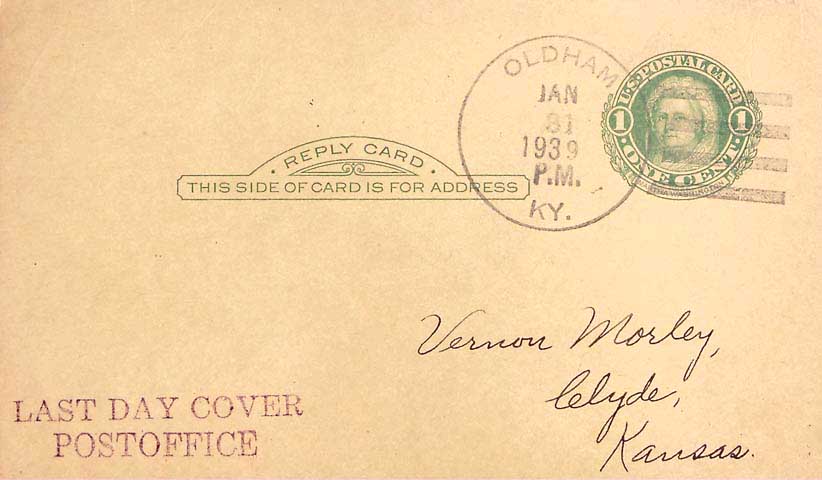 OLDHAM
JAN
31
1939
P.M.
KY.
U.S. POSTAL CARD
1 1
· ONE CENT ·
MARTHA WASHINGTON
· REPLY CARD ·
THIS SIDE OF CARD IS FOR ADDRESS
Vernon Morley,
Clyde,
Kansas.
LAST DAY COVER
POSTOFFICE